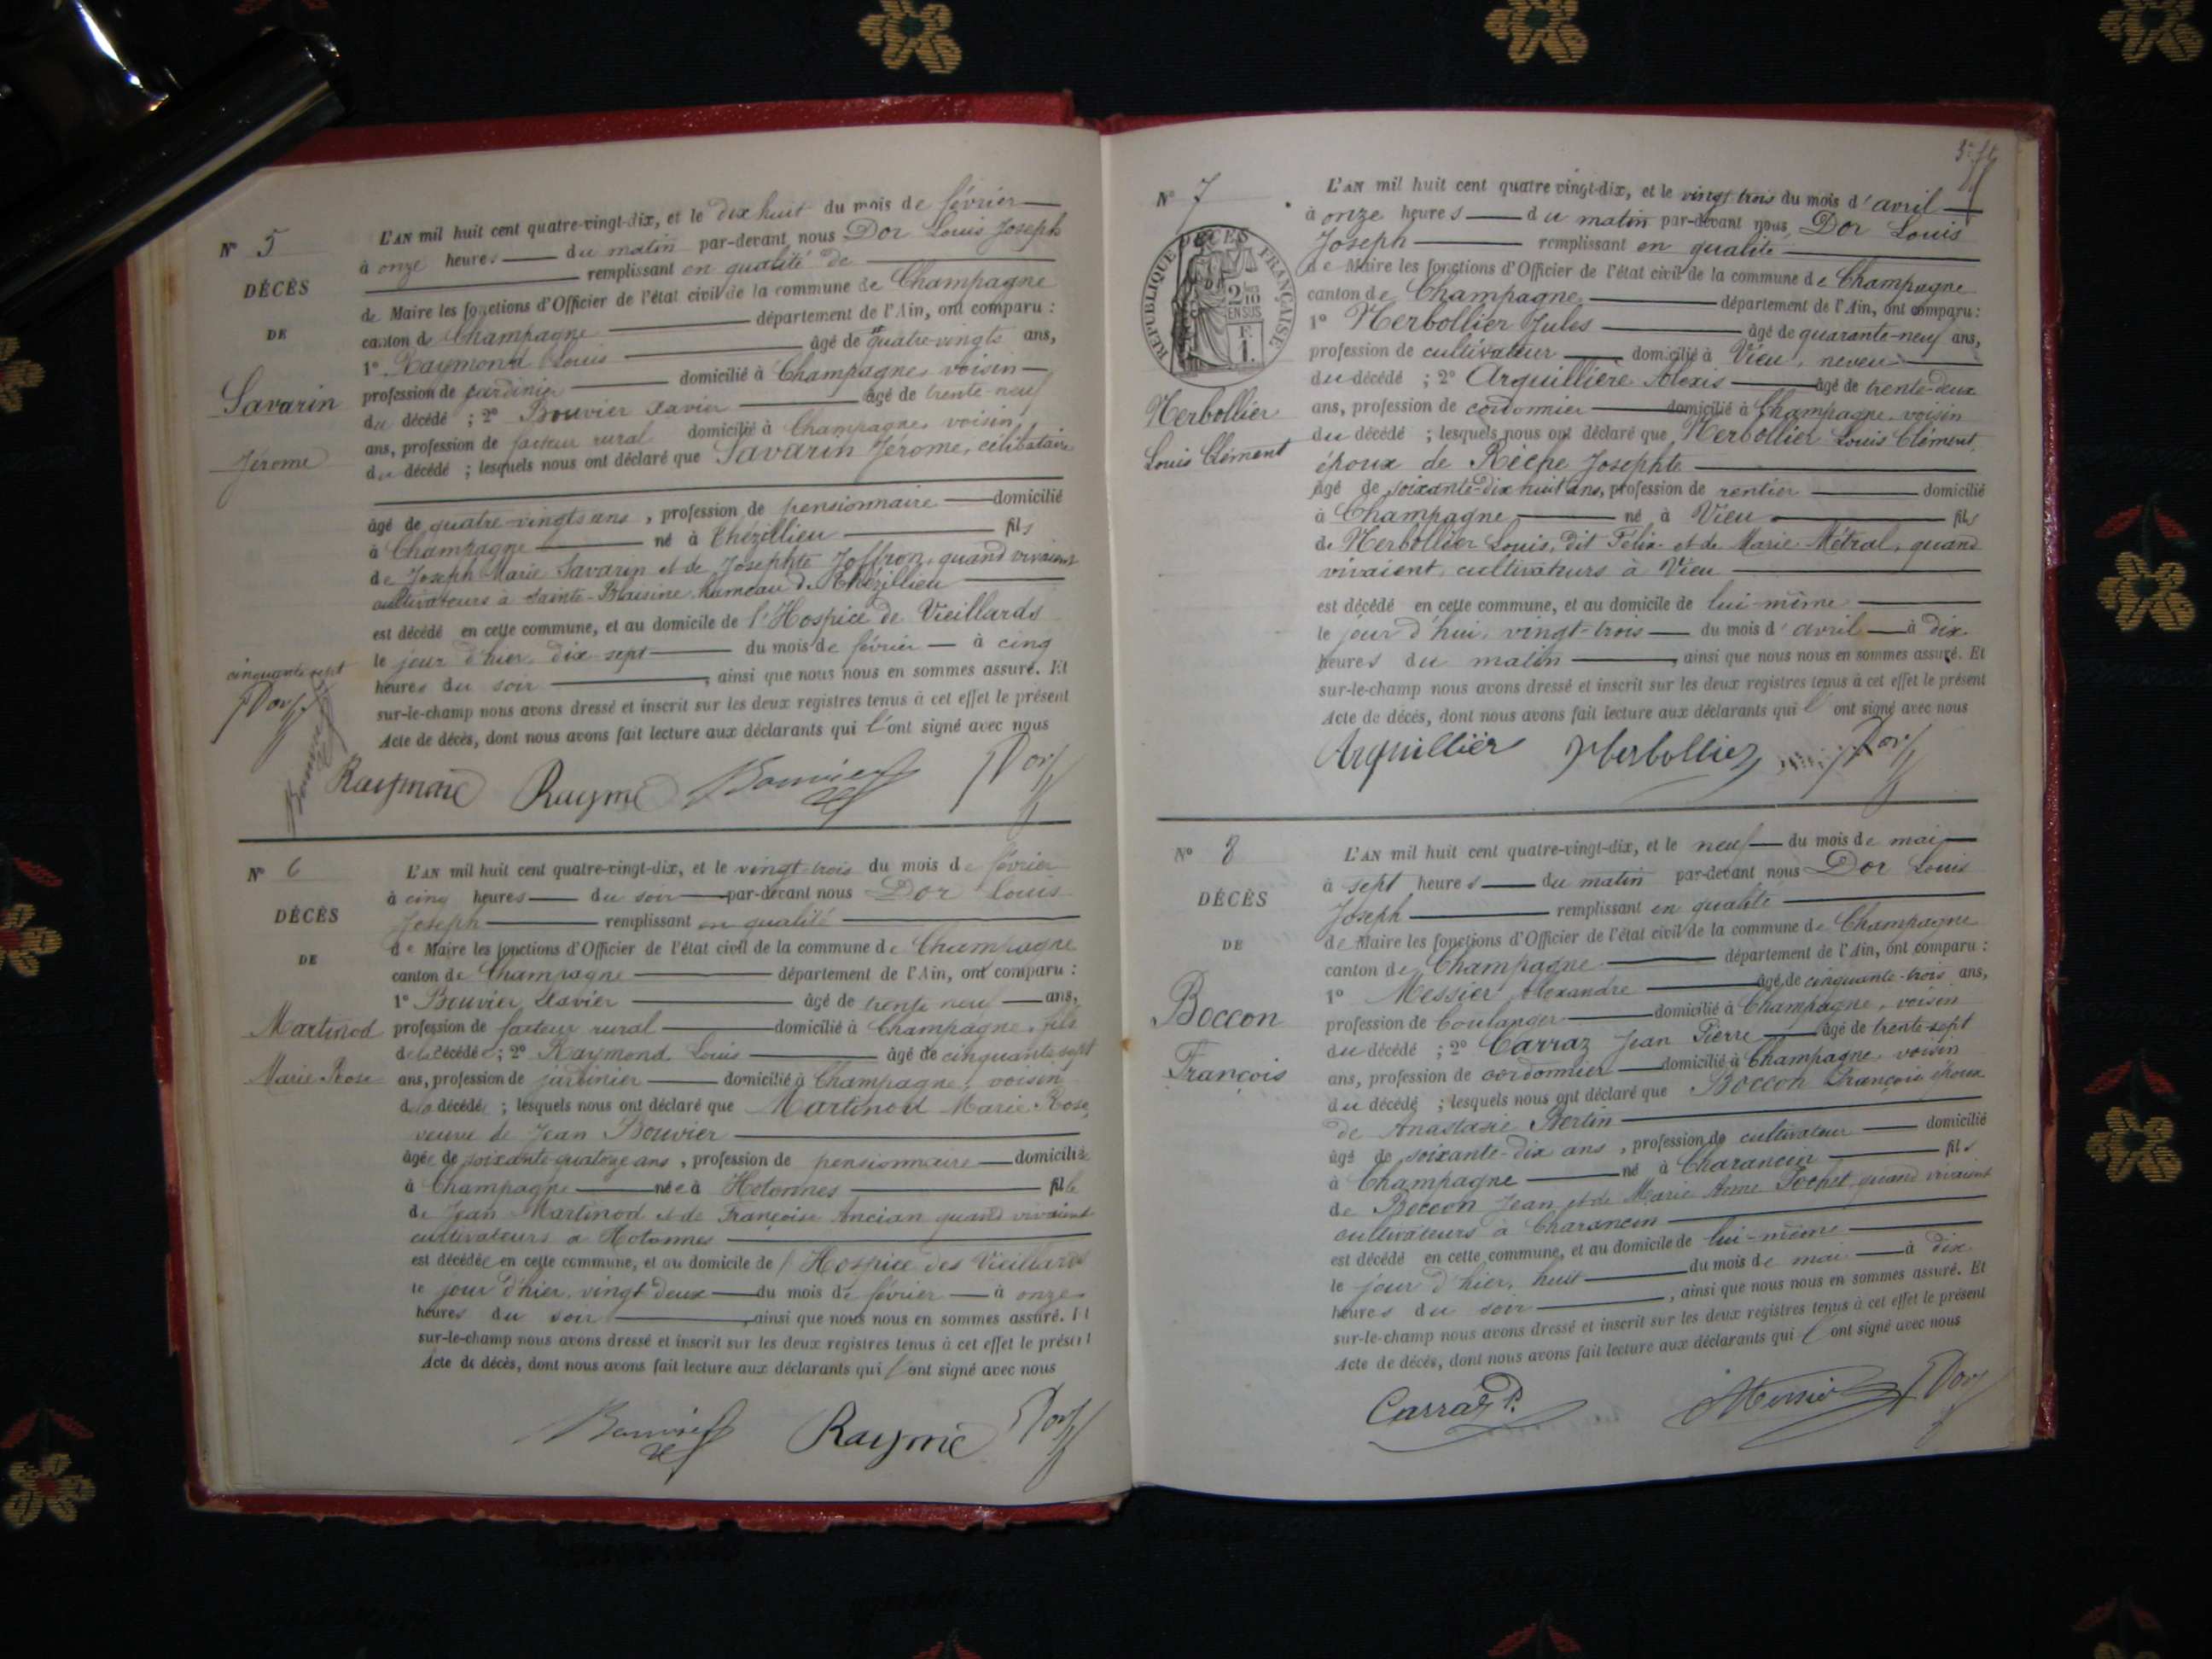 N° 5
DÉCÈS
DE
Savarin
Jérome
L'AN mil huit cent quatre-vingt-dix, et le dix huit du mois de février
à onze heures du matin par-devant nous Dor Louis Joseph
remplissant en qualité de
de Maire les fonctions d'Officier de l'état civil de la commune de Champagne
canton de Champagne département de l'Ain, ont comparu :
1° Raymond Louis âgé de quatre-vingts ans,
profession de jardinier domicilié à Champagne, voisin
du décédé ; 2° Bouvier Xavier âgé de trente-neuf
ans, profession de facteur rural domicilié à Champagne, voisin
du décédé ; lesquels nous ont déclaré que Savarin Jérome, célibataire
âgé de quatre-vingts ans, profession de pensionnaire domicilié
à Champagne né à Thézillieu fils
de Joseph Marie Savarin et de Josephte Joffron, quand vivaient
cultivateurs à Sainte-Blaisine hameau de Thézillieu
est décédé en cette commune, et au domicile de l'Hospice de Vieillards
le jour d'hier, dix-sept du mois de février à cinq
heures du soir, ainsi que nous nous en sommes assuré. Et
sur-le-champ nous avons dressé et inscrit sur les deux registres tenus à cet effet le présent
Acte de décès, dont nous avons fait lecture aux déclarants qui l'ont signé avec nous
cinquante-sept
Dor
Bouvier
Raymond Raymé Bouvier Dor
N° 6
DÉCÈS
DE
Martinod
Marie Rose
L'AN mil huit cent quatre-vingt-dix, et le vingt-trois du mois de février
à cinq heures du soir par-devant nous Dor Louis
Joseph remplissant en qualité
de Maire les fonctions d'Officier de l'état civil de la commune de Champagne
canton de Champagne département de l'Ain, ont comparu :
1° Bouvier Xavier âgé de trente neuf ans,
profession de facteur rural domicilié à Champagne, fils
de la décédée ; 2° Raymond Louis âgé de cinquante sept
ans, profession de jardinier domicilié à Champagne, voisin
de la décédée ; lesquels nous ont déclaré que Martinod Marie Rose,
veuve de Jean Bouvier
âgée de soixante quatorze ans, profession de pensionnaire domiciliée
à Champagne née à Hotonnes fille
de Jean Martinod et de Françoise Ancian quand vivaient
cultivateurs à Hotonnes
est décédée en cette commune, et au domicile de l'Hospice des Vieillards
le jour d'hier, vingt deux du mois de février à onze
heures du soir, ainsi que nous nous en sommes assuré. Et
sur-le-champ nous avons dressé et inscrit sur les deux registres tenus à cet effet le présent
Acte de décès, dont nous avons fait lecture aux déclarants qui l'ont signé avec nous
Bouvier Raymé Dor
N° 7
DÉCÈS
RÉPUBLIQUE FRANÇAISE
2/10 EN SUS
F. 1.
Herbollier
Louis Clément
L'AN mil huit cent quatre vingt-dix, et le vingt trois du mois d'avril
à onze heures du matin par-devant nous, Dor Louis
Joseph remplissant en qualité
de Maire les fonctions d'Officier de l'état civil de la commune de Champagne
canton de Champagne département de l'Ain, ont comparu :
1° Herbollier Jules âgé de quarante-neuf ans,
profession de cultivateur domicilié à Vieu, neveu
du décédé ; 2° Arquillière Alexis âgé de trente-deux
ans, profession de cordonnier domicilié à Champagne, voisin
du décédé ; lesquels nous ont déclaré que Herbollier Louis Clément,
époux de Récpe Josephte
âgé de soixante-dix huit ans, profession de rentier domicilié
à Champagne né à Vieu fils
de Herbollier Louis, dit Félix et de Marie Métral, quand
vivaient, cultivateurs à Vieu
est décédé en cette commune, et au domicile de lui-même
le jour d'hui, vingt-trois du mois d'avril à dix
heures du matin, ainsi que nous nous en sommes assuré. Et
sur-le-champ nous avons dressé et inscrit sur les deux registres tenus à cet effet le présent
Acte de décès, dont nous avons fait lecture aux déclarants qui l'ont signé avec nous
Arquillièr Herbollier Dor
N° 8
DÉCÈS
DE
Boccon
François
L'AN mil huit cent quatre-vingt-dix, et le neuf du mois de mai
à sept heures du matin par-devant nous Dor Louis
Joseph remplissant en qualité
de Maire les fonctions d'Officier de l'état civil de la commune de Champagne
canton de Champagne département de l'Ain, ont comparu :
1° Messier Alexandre âgé de cinquante-trois ans,
profession de boulanger domicilié à Champagne, voisin
du décédé ; 2° Carraz Jean Pierre âgé de trente-sept
ans, profession de cordonnier domicilié à Champagne, voisin
du décédé ; lesquels nous ont déclaré que Boccon François époux
de Anastasie Bertin
âgé de soixante-dix ans, profession de cultivateur domicilié
à Champagne né à Charancin fils
de Boccon Jean et de Marie Anne Pochet, quand vivaient
cultivateurs à Charancin
est décédé en cette commune, et au domicile de lui-même
le jour d'hier, huit du mois de mai à dix
heures du soir, ainsi que nous nous en sommes assuré. Et
sur-le-champ nous avons dressé et inscrit sur les deux registres tenus à cet effet le présent
Acte de décès, dont nous avons fait lecture aux déclarants qui l'ont signé avec nous
Carraz P. Messier Dor